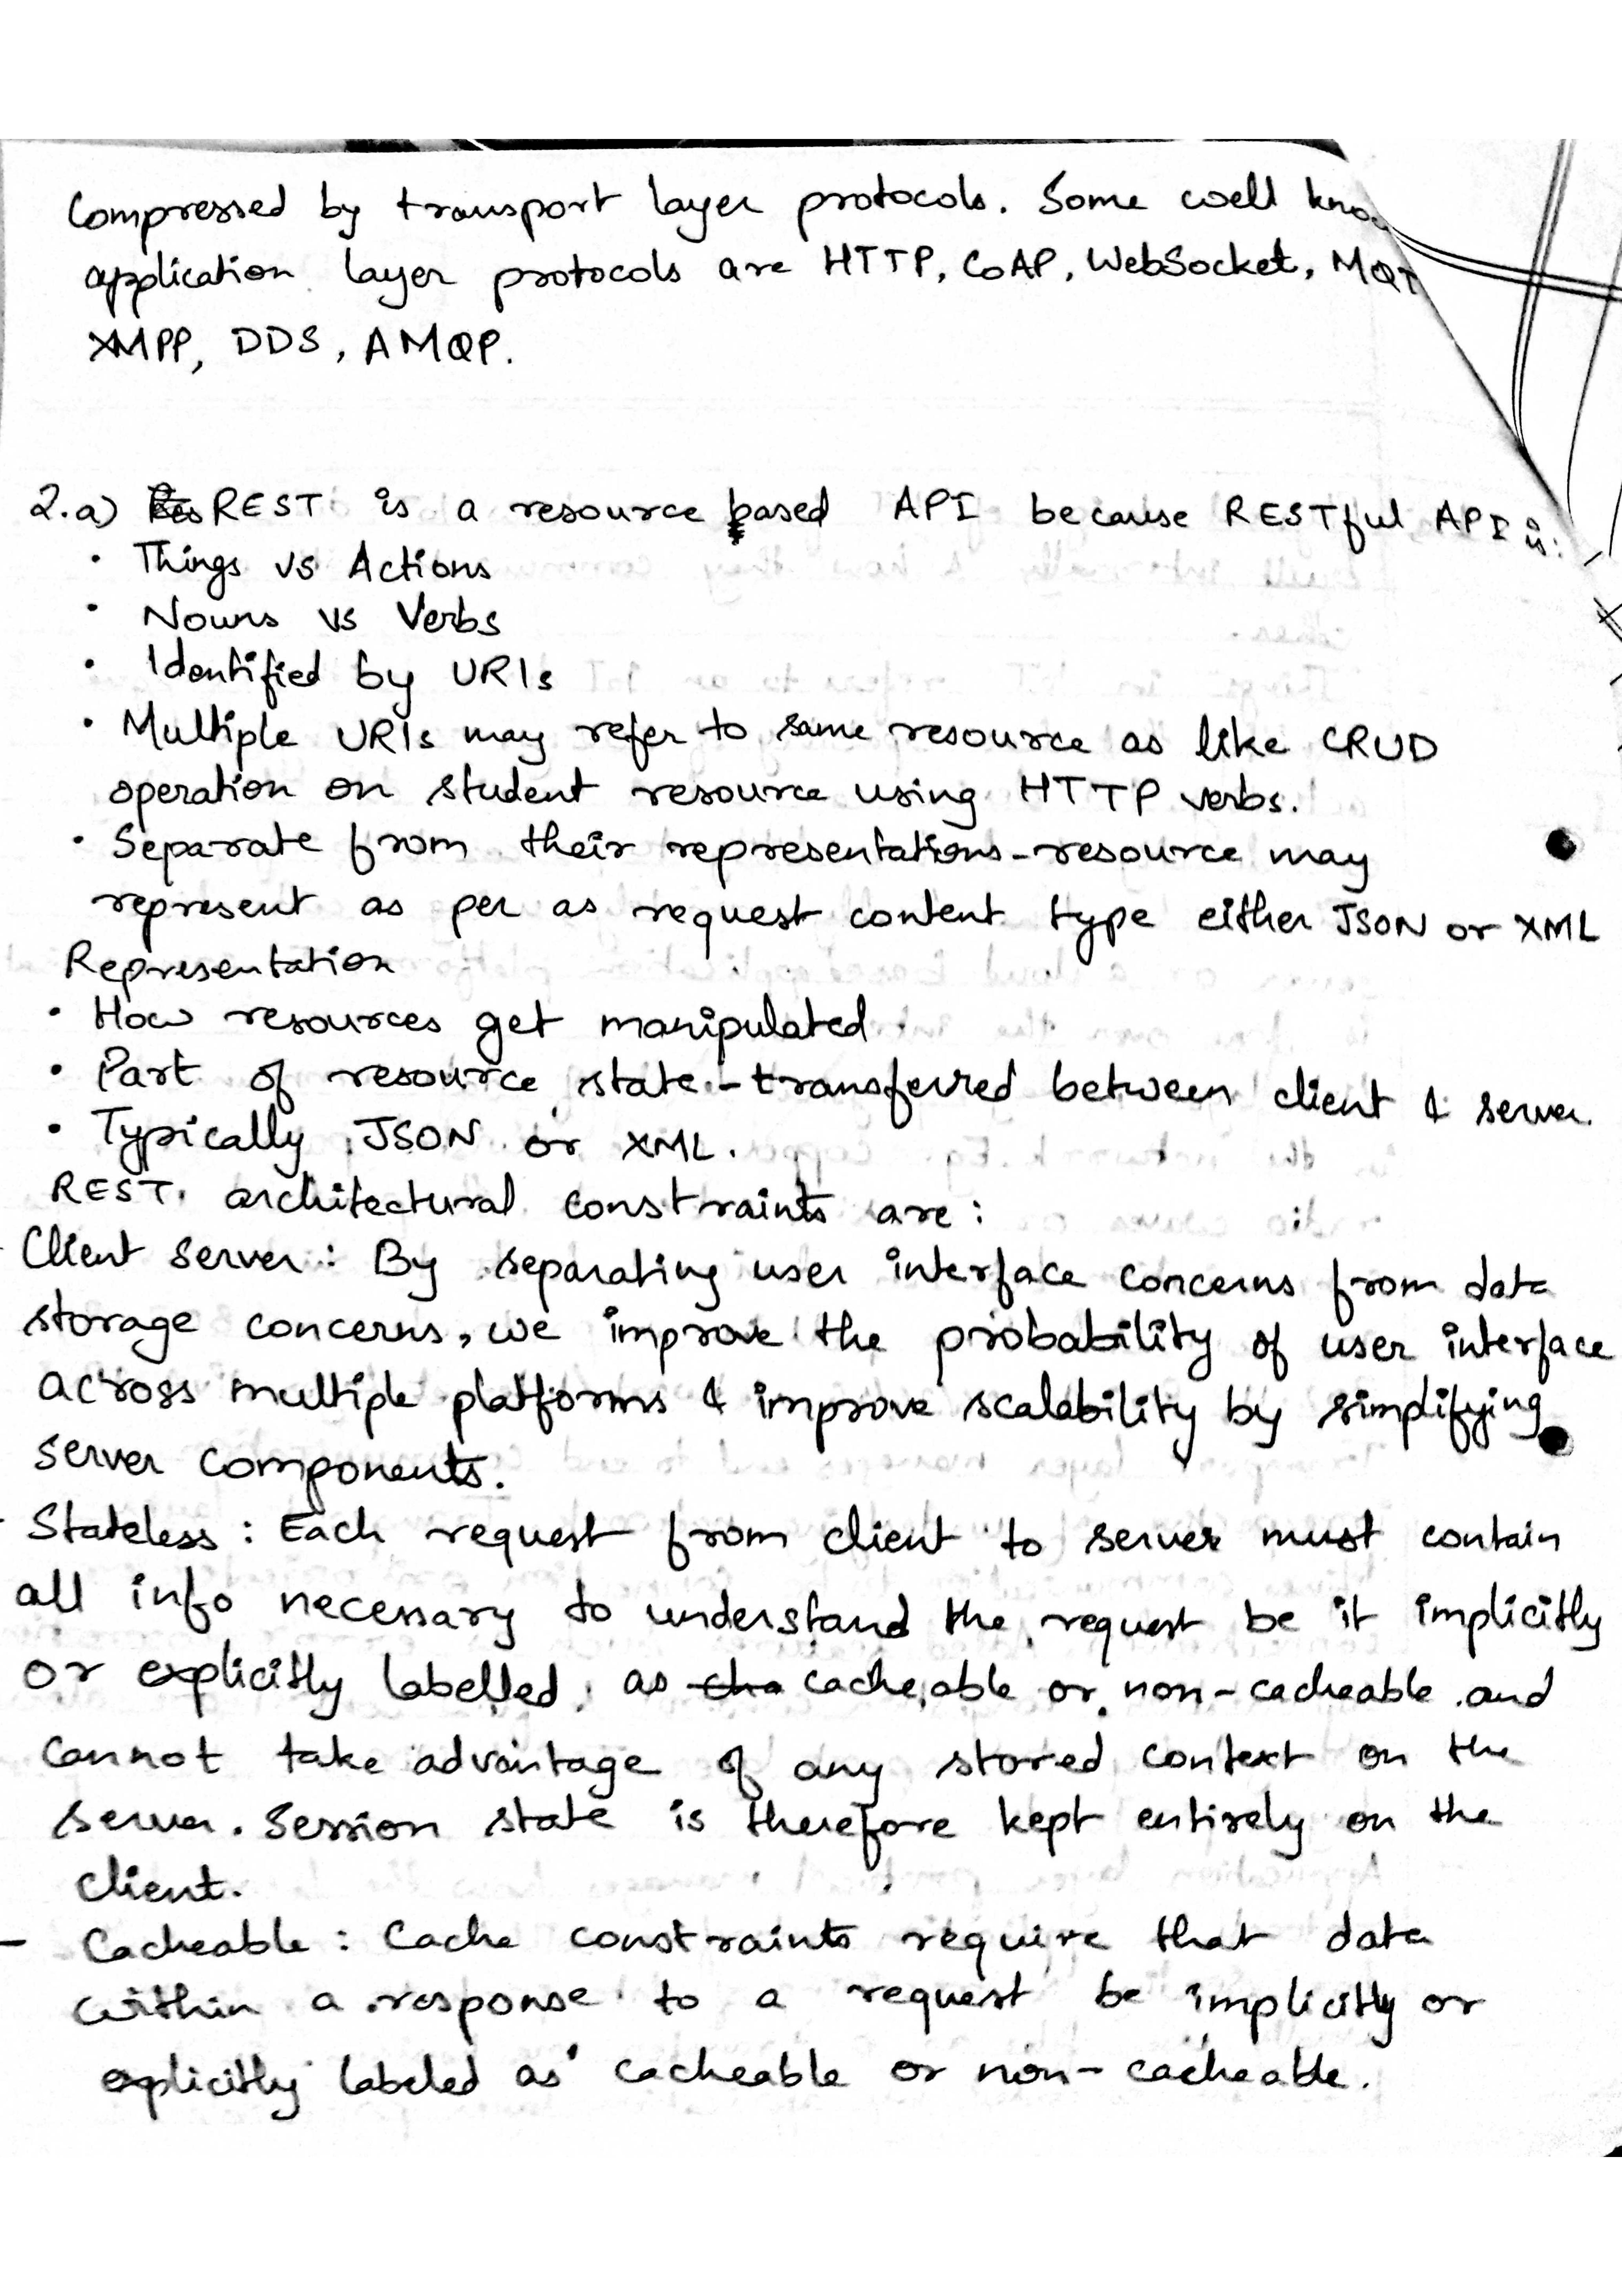 Compressed by transport layer protocols. Some well kno
application layer protocols are HTTP, CoAP, WebSocket, MQT
XMPP, DDS, AMQP.
2.a) REST is a resource based API because RESTful API is:
• Things vs Actions
• Nouns vs Verbs
• Identified by URIs
• Multiple URIs may refer to same resource as like CRUD
operation on student resource using HTTP verbs.
• Separate from their representations-resource may
represent as per as request content type either JSON or XML
Representation
• How resources get manipulated
• Part of resource state - transferred between client & server.
• Typically JSON or XML.
REST architectural constraints are:
- Client server: By separating user interface concerns from data
storage concerns, we improve the probability of user interface
across multiple platforms & improve scalability by simplifying
server components.
- Stateless: Each request from client to server must contain
all info necessary to understand the request be it implicitly
or explicitly labelled as cacheable or non-cacheable and
cannot take advantage of any stored context on the
server. Session state is therefore kept entirely on the
client.
- Cacheable: Cache constraints require that data
within a response to a request be implicitly or
explicitly labeled as cacheable or non-cacheable.